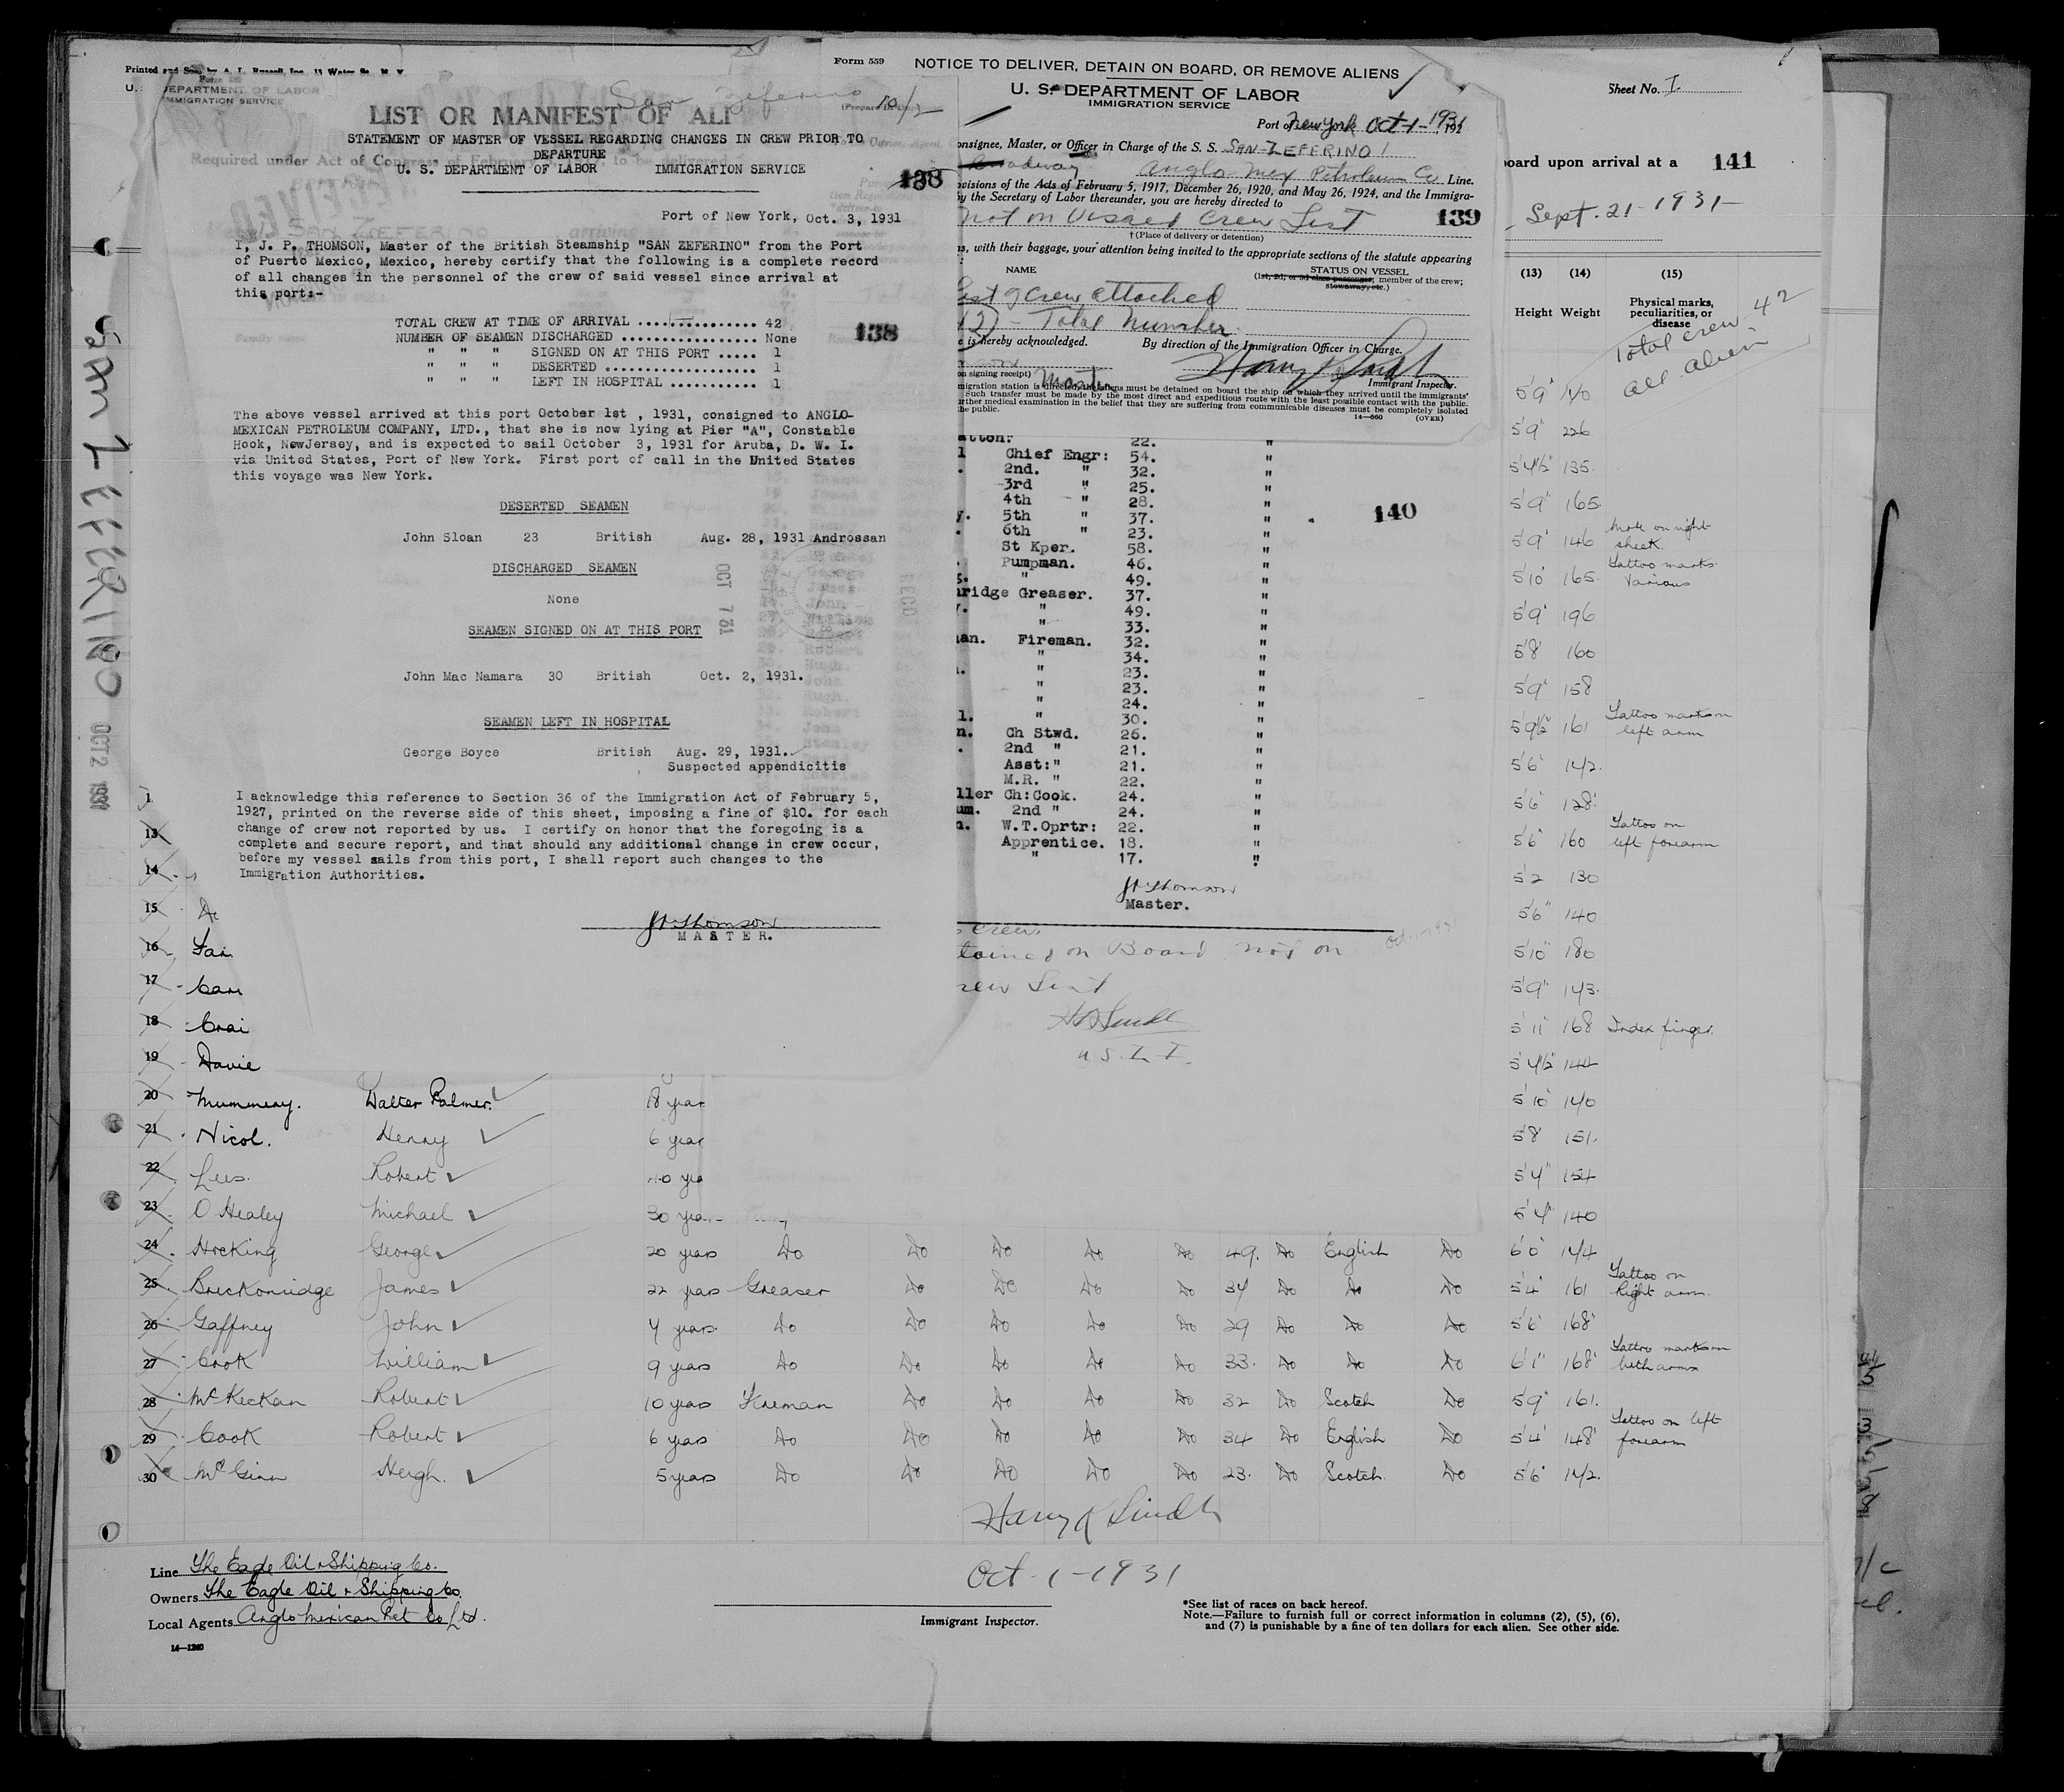 Printed and Sold by A. L. Russell, Inc., 11 Water St., N. Y.
U. S. DEPARTMENT OF LABOR
IMMIGRATION SERVICE
San Zeferino
10/2
LIST OR MANIFEST OF ALI
STATEMENT OF MASTER OF VESSEL REGARDING CHANGES IN CREW PRIOR TO
DEPARTURE
Required under Act of Congress of February to be delivered
U. S. DEPARTMENT OF LABOR IMMIGRATION SERVICE
138
Port of New York, Oct. 3, 1931
SAN ZEFERINO
I, J. P. THOMSON, Master of the British Steamship "SAN ZEFERINO" from the Port
of Puerto Mexico, Mexico, hereby certify that the following is a complete record
of all changes in the personnel of the crew of said vessel since arrival at
this port:-
TOTAL CREW AT TIME OF ARRIVAL ................ 42
NUMBER OF SEAMEN DISCHARGED .................. None
" " " SIGNED ON AT THIS PORT ..... 1
" " " DESERTED ................... 1
" " " LEFT IN HOSPITAL ........... 1
138
The above vessel arrived at this port October 1st , 1931, consigned to ANGLO-
MEXICAN PETROLEUM COMPANY, LTD., that she is now lying at Pier "A", Constable
Hook, NewJersey, and is expected to sail October 3, 1931 for Aruba, D. W. I.
via United States, Port of New York. First port of call in the United States
this voyage was New York.
DESERTED SEAMEN
John Sloan 23 British Aug. 28, 1931 Androssan
DISCHARGED SEAMEN
None
SEAMEN SIGNED ON AT THIS PORT
John Mac Namara 30 British Oct. 2, 1931.
SEAMEN LEFT IN HOSPITAL
George Boyce British Aug. 29, 1931.
Suspected appendicitis
I acknowledge this reference to Section 36 of the Immigration Act of February 5,
1927, printed on the reverse side of this sheet, imposing a fine of $10. for each
change of crew not reported by us. I certify on honor that the foregoing is a
complete and secure report, and that should any additional change in crew occur,
before my vessel sails from this port, I shall report such changes to the
Immigration Authorities.
J P Thomson
MASTER.
OCT 7 31
RECD
SAN ZEFERINO
OCT 2 1931
Form 559
NOTICE TO DELIVER, DETAIN ON BOARD, OR REMOVE ALIENS
U. S. DEPARTMENT OF LABOR
IMMIGRATION SERVICE
Port of New York Oct-1-1931
onsignee, Master, or Officer in Charge of the S. S. SAN-ZEFERINO
Broadway Anglo Mex Petroleum Co Line.
ovisions of the Acts of February 5, 1917, December 26, 1920, and May 26, 1924, and the Immigra-
by the Secretary of Labor thereunder, you are hereby directed to
not on Visaed Crew List 139
† (Place of delivery or detention)
s, with their baggage, your attention being invited to the appropriate sections of the statute appearing
NAME STATUS ON VESSEL
(1st, 2d, or 3d class passenger, member of the crew; stowaway, etc.)
List of crew attached
42) - Total number
e is hereby acknowledged. By direction of the Immigration Officer in Charge.
Harry K Lindh
on signing receipt) Master Immigrant Inspector.
migration station is directed, the aliens must be detained on board the ship on which they arrived until the immigrants'
Such transfer must be made by the most direct and expeditious route with the least possible contact with the public.
urther medical examination in the belief that they are suffering from communicable diseases must be completely isolated
the public.
14—660 (OVER)
atton: 22. "
Chief Engr: 54. "
2nd. " 32. "
3rd " 25. "
4th " 28. "
5th " 37. "
6th " 23. "
140
St Kper. 58. "
Pumpman. 46. "
" 49. "
ridge Greaser. 37. "
" 49. "
" 33. "
an. Fireman. 32. "
" 34. "
" 23. "
" 23. "
" 24. "
" 30. "
Ch Stwd. 26. "
2nd " 21. "
Asst:" 21. "
M.R. " 22. "
ller Ch:Cook. 24. "
um. 2nd " 24. "
n. W.T.Oprtr: 22. "
Apprentice. 18. "
" 17. "
J P Thomson
Master.
crew
tained on Board not on
rew List
Oct-1-1931
H K Lindh
U.S.I.I.
Sheet No. I
board upon arrival at a 141
Sept. 21-1931-
(13) (14) (15)
Height Weight Physical marks, peculiarities, or disease
Total crew 42
all alien
5'9" 140
5'9" 226
5'4½" 135.
5'9" 165
5'9" 146 Mole on right cheek.
5'10" 165. Tattoo marks various
5'9" 196
5'8" 160
5'9" 158
5'9½" 161 Tattoo marks on left arm
5'6" 142.
5'6" 128
5'6" 160 Tattoo on left forearm
5'2 130
5'6" 140
5'10" 180
5'9" 143.
5'11" 168 Index finger.
5'4½" 144
13
14
15
16
17
18 Crai
19 Davie
20 Mummery. Walter Palmer. 18 year 5'10" 140
21 Nicol. Henry 6 year 5'8" 151.
22 Lees. Robert 40 yea 5'4" 154
23 O Healey Michael 30 yea 5'4" 140
24 Hocking George 20 years Do Do Do Do Do 49. Do English Do 6'0" 144
25 Breckonridge James 22 years Greaser Do Do Do Do 34 Do Do Do 5'4" 161 Tattoo on Right arm.
26 Gaffney John 4 years Do Do Do Do Do 29 Do Do Do 5'6" 168
27 Crok William 9 years Do Do Do Do Do 33. Do Do Do 6'1" 168 Tattoo marks on both arms
28 McKeckan Robert 10 years Fireman Do Do Do Do 32 Do Scotch Do 5'9" 161.
29 Cook Robert 6 years Do Do Do Do Do 34 Do English Do 5'4" 148 Tattoo on left forearm
30 McGinn Hugh. 5 years Do Do Do Do Do 23. Do Scotch. Do 5'6" 142.
Harry K Lindh
Line The Eagle Oil & Shipping Co.
Owners The Eagle Oil & Shipping Co.
Local Agents Anglo Mexican Pet Co Ltd.
14—1240
Oct-1-1931
Immigrant Inspector.
*See list of races on back hereof.
Note.—Failure to furnish full or correct information in columns (2), (5), (6),
and (7) is punishable by a fine of ten dollars for each alien. See other side.